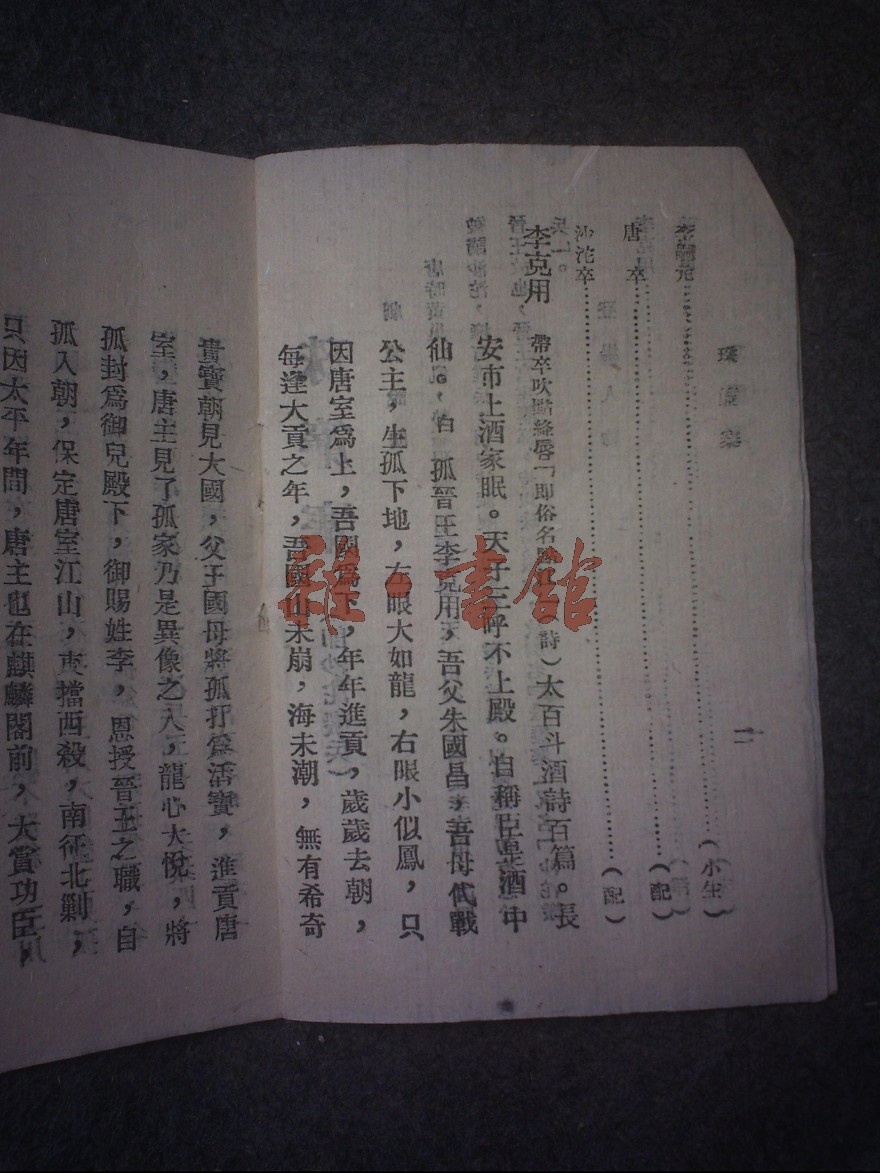 二
李嗣元……（小生）
唐　卒……（配）
沙沱卒……（配）
李克用　帶卒吹點絳唇「即俗名 （詩）太百斗酒詩百篇。長
安市上酒家眠。天子三呼不上殿。自稱臣是酒中
仙。白　孤晉王李克用，吾父朱國昌，吾母代戰
公主，生孤下地，左眼大如龍，右眼小似鳳，只
因唐室爲上，吾國爲下，年年進貢，歲歲去朝，
每逢大貢之年，吾國山未崩，海未潮，無有希奇
貴寶朝見大國，父王國母將孤打爲活寶，進貢唐
室，唐主見了孤家乃是異像之人，龍心大悅，將
孤封爲御兒殿下，御賜姓李，恩授晉王之職，自
孤入朝，保定唐室江山，東擋西殺，南征北剿，
只因太平年間，唐主也在麒麟閣前，大賞功臣，
雅·書館